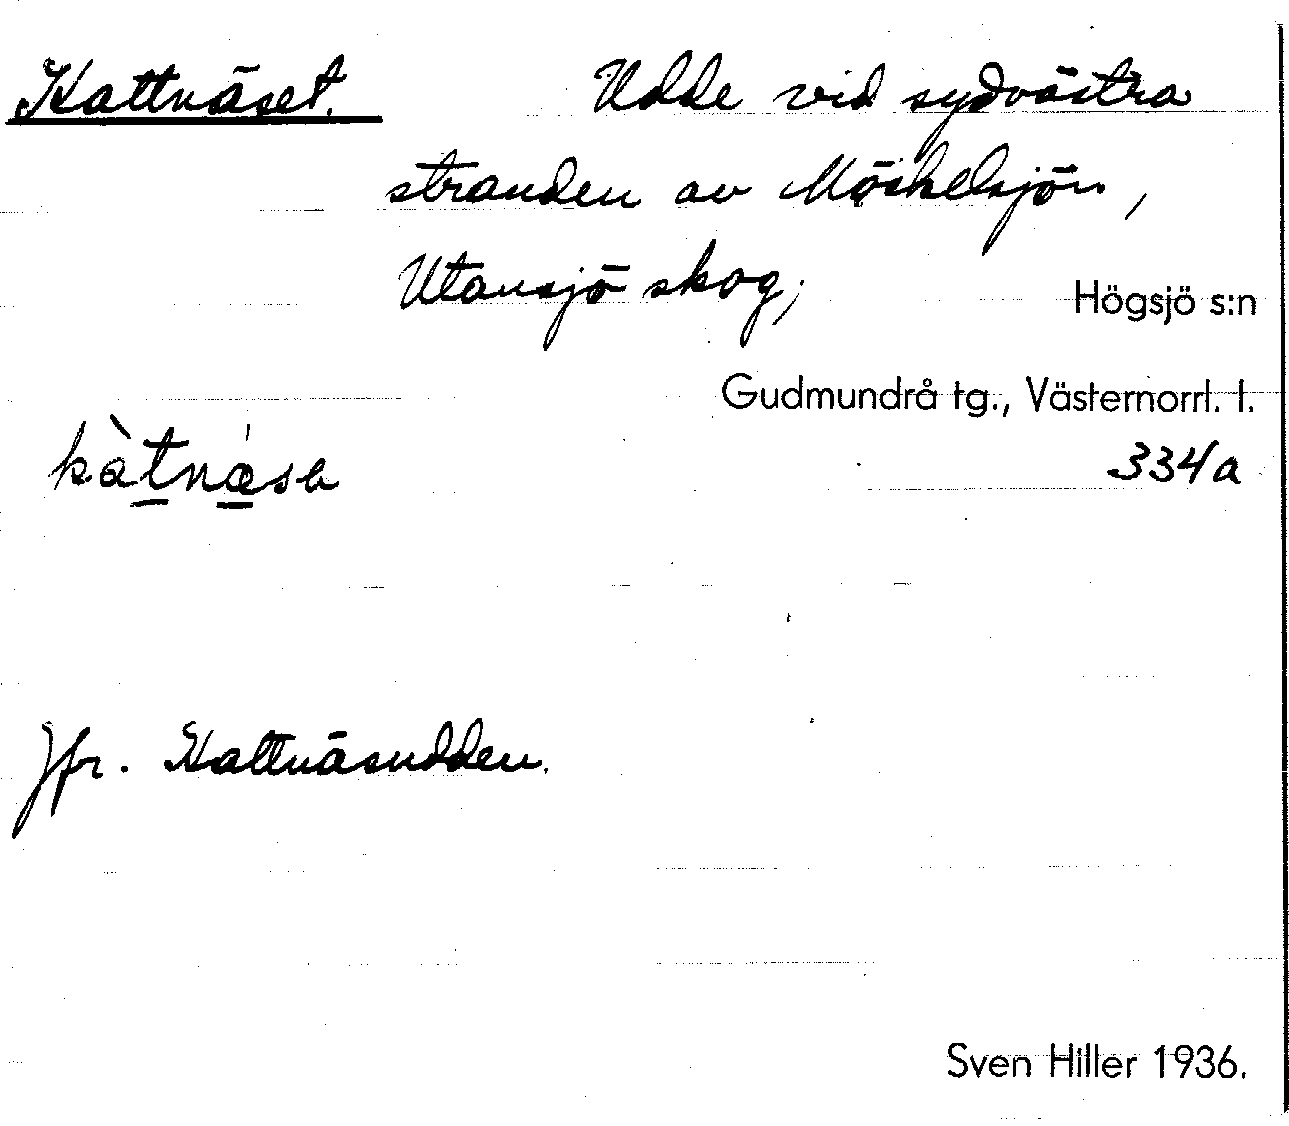 Kattnäset. Udde vid sydvästra
stranden av Möskelsjön,
Utansjö skog; Högsjö s:n
Gudmundrå tg., Västernorrl. l.
kàtnǽsə 334a
Jfr. Kattnäsudden.
Sven Hiller 1936.